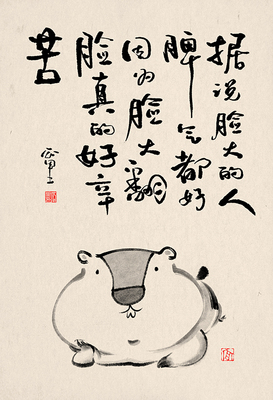 据说脸大的人
脾气都好
因为脸大翻
脸真的好辛
苦